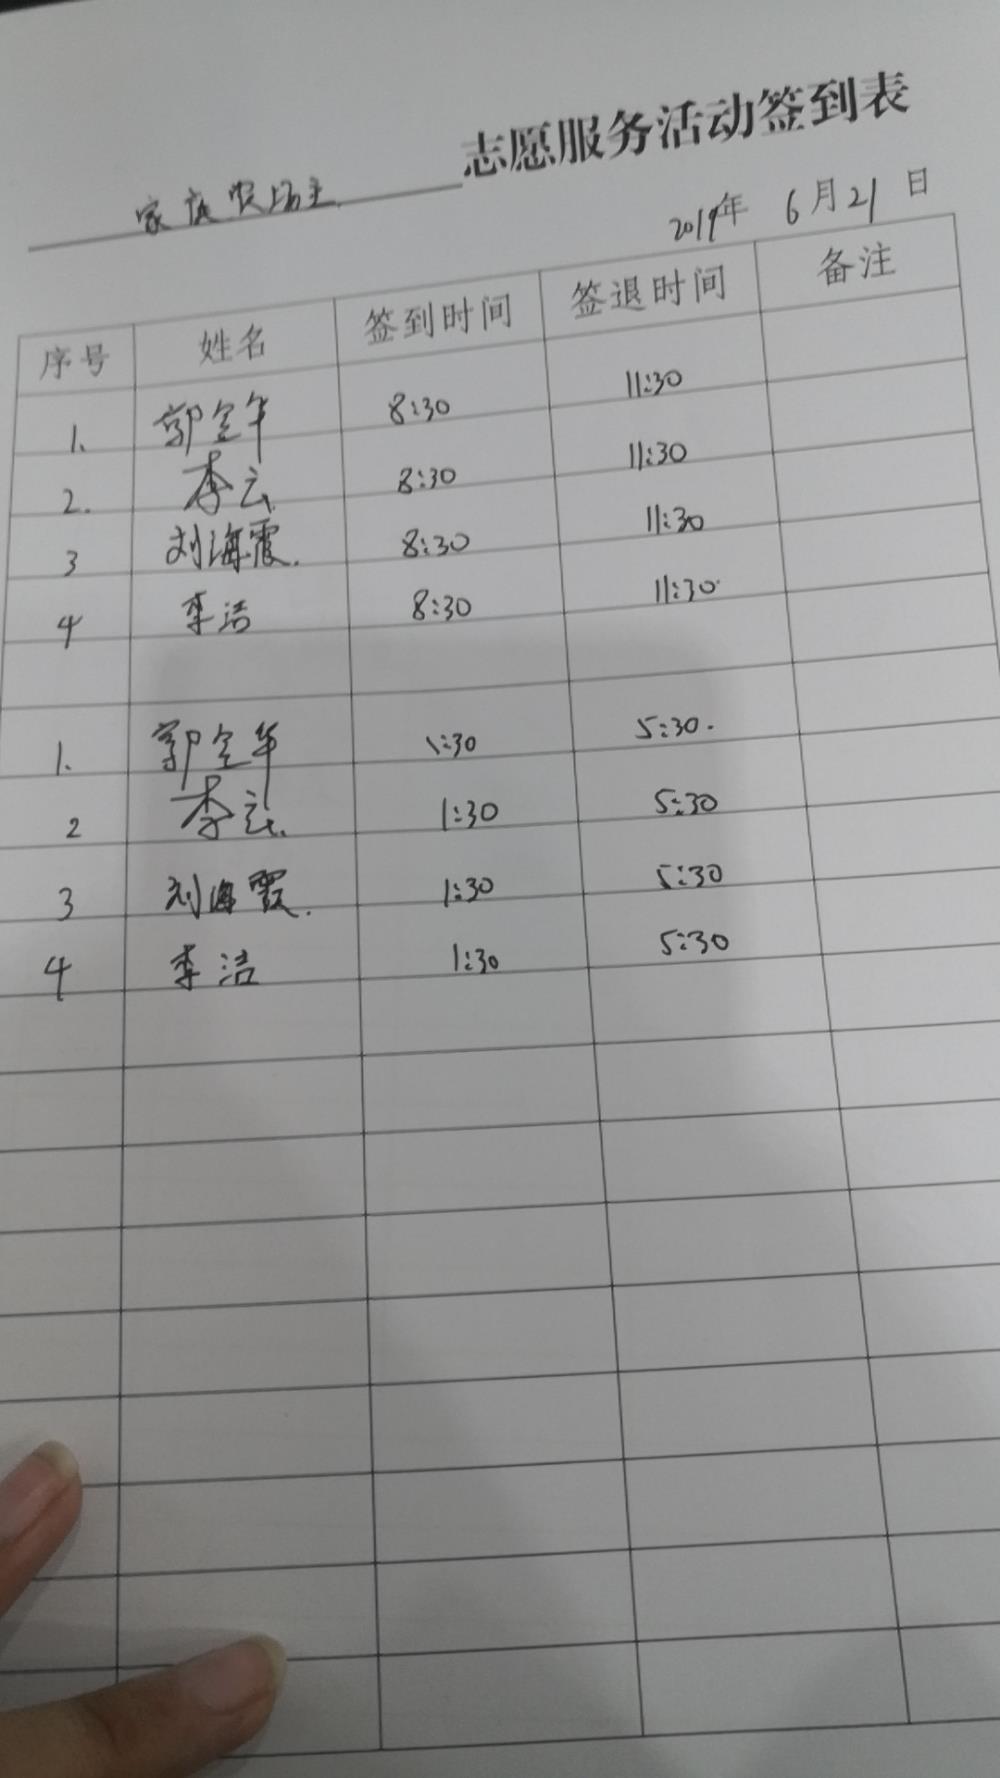 家庭农场主 志愿服务活动签到表
2019年 6月21日
序号 姓名 签到时间 签退时间 备注
1. 郭金华 8:30 11:30
2. 李云 8:30 11:30
3 刘海霞. 8:30 11:30
4 李洁 8:30 11:30
1. 郭金华 1:30 5:30.
2 李云. 1:30 5:30
3 刘海霞. 1:30 5:30
4 李洁 1:30 5:30